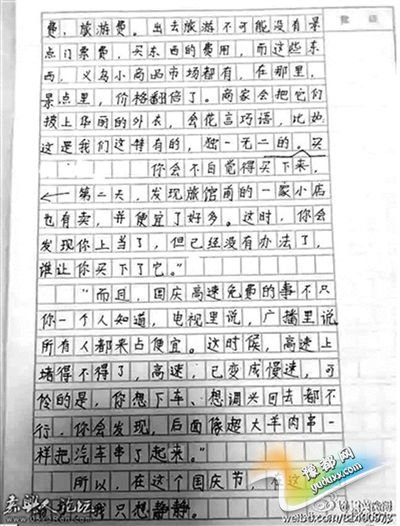 批语
费、旅游费。出去旅游不可能没有景
点门票费，买东西的费用，而这些东
西，义乌小商品市场都有，在那里，
景点里，价格翻倍了。商家会把它们
披上华丽的外衣，会花言巧语，比如
这是我们这特有的，独一无二的。买
你会不自觉得买下来，
第二天，发现旅馆前的一家小店
也有卖，并便宜了好多。这时，你会
发现你上当了，但已经没有办法了，
谁让你买下了它。”
“而且，国庆高速免费的事不只
你一个人知道，电视里说，广播里说
所有人都来占便宜。这时候，高速上
堵得不得了，高速，已变成慢速，可
怜的是，你想下车、想调头回去都不
行，你会发现，后面像超大羊肉串一
样把汽车串了起来。”
所以，在这个国庆节，在这
我只想静静。
豫都网
yubuxx.com